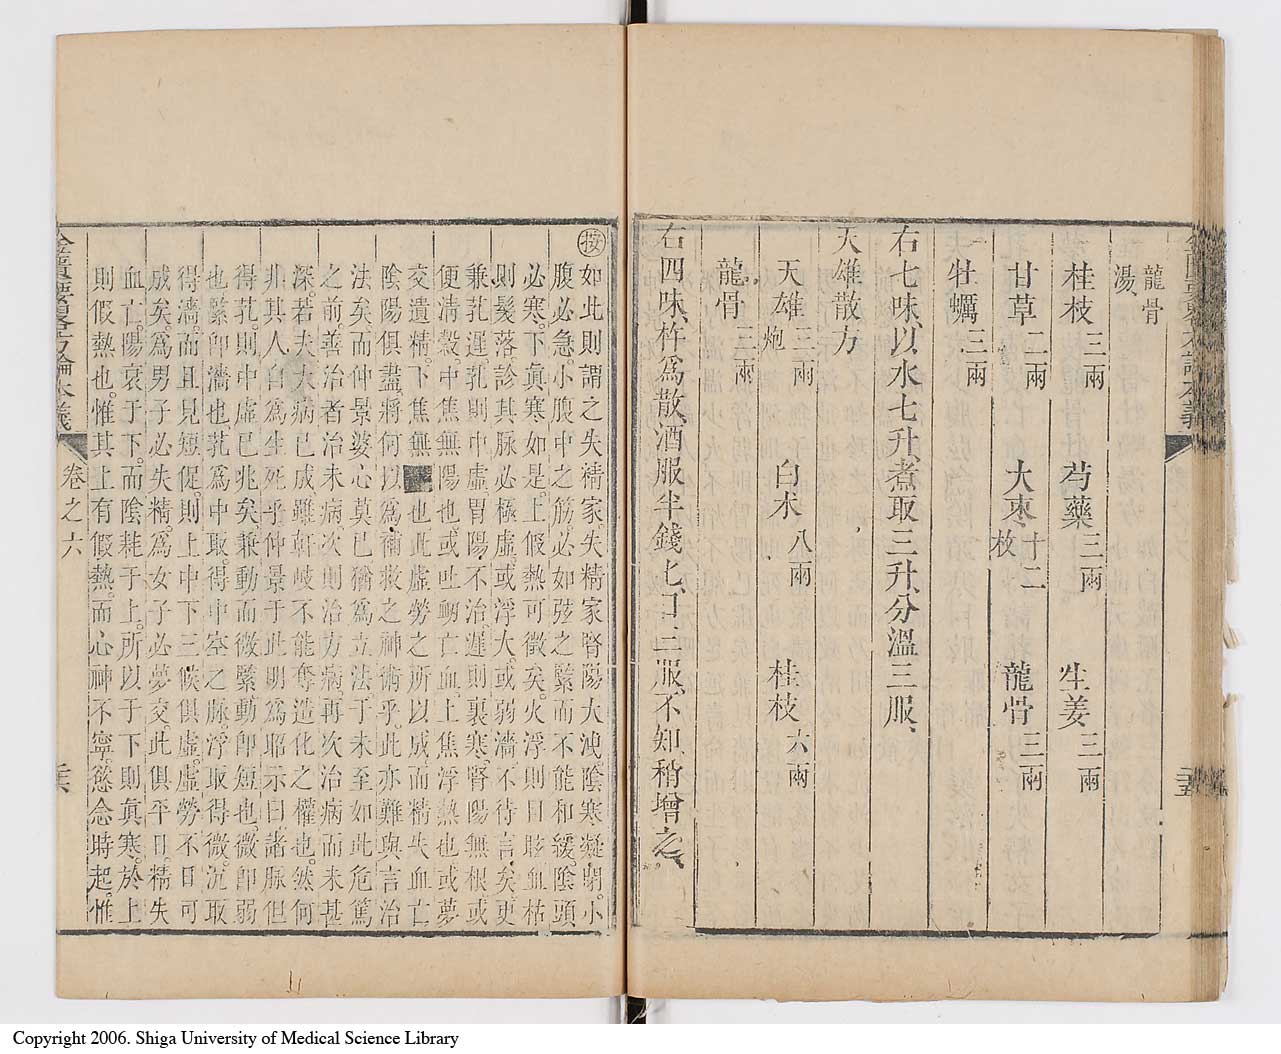 龍骨
湯
桂枝三兩 芍藥三兩 生姜三兩
甘草二兩 大棗十二枚 龍骨三兩
牡蠣三兩
右七味、以水七升、煮取三升、分溫三服、
天雄散方
天雄三兩炮 白朮八兩 桂枝六兩
龍骨三兩
右四味、杵爲散、酒服半錢匕、日三服、不知、稍增之、
按如此則謂之失精家。失精家腎陽大洩。陰寒凝閉。小
腹必急。小腹中之筋。必如弦之緊而不能和緩。陰頭
必寒。下眞寒如是。上假熱可徵矣。火浮則目眩血枯
則髮落。診其脉必極虛。或浮大。或弱濇。不待言矣。更
兼芤遲。芤則中虛。胃陽不治。遲則裏寒。腎陽無根。或
便淸穀。中焦無陽也。或吐衂亡血。上焦浮熱也。或夢
交遺精。下焦無 也。此虛勞之所以成。而精失血亡
陰陽俱盡。將何以爲補救之神術乎。此亦難與言治
法矣。而仲景婆心莫已。猶爲立法于于未至如此危篤
之前。善治者治未病。次則治方病。再次治病而未甚
深。若夫大病已成。雖軒岐不能奪造化之權也。然何
非其人自爲生死乎。仲景于此明爲昭示曰。諸脉但
得芤。則中虛已兆矣。兼動而微緊。動卽短也。微卽弱
也。緊卽濇也。芤爲中取。得中空之脉。浮取得微。沉取
得濇。而且見短促。則上中下三候俱虛。虛勞不日可
成矣。爲男子必失精。爲女子必夢交。此俱平日。精失
血亡。陽衰于下。而陰耗于上。所以于下則眞寒。於上
則假熱也。惟其上有假熱。而心神不寧。慾念時起。惟
金匱要畧方論本義 卷之六